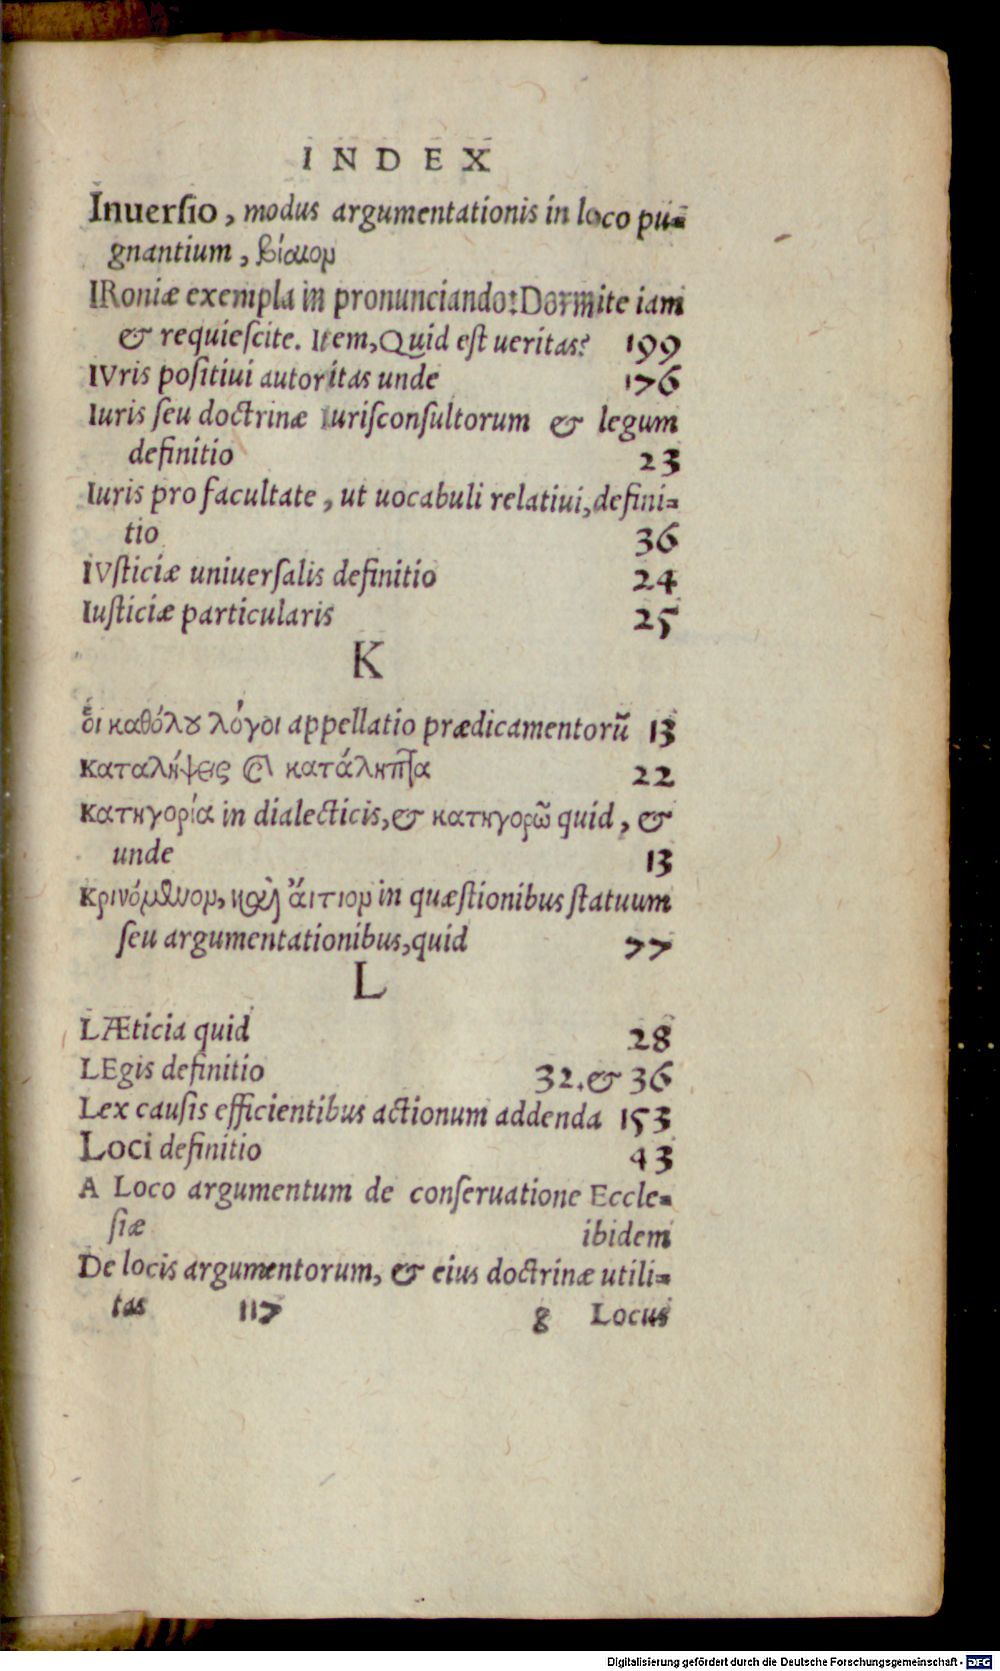 INDEX
Inuerſio, modus argumentationis in loco pu=
gnantium, βίαιον
IRoniæ exempla in pronunciando: Dormite iam
& requieſcite. Item, Quid eſt ueritas? 199
IVris poſitiui autoritas unde 176
Iuris ſeu doctrinæ Iuriſconſultorum & legum
definitio 23
Iuris pro facultate, ut uocabuli relatiui, defini=
tio 36
IVſticiæ uniuerſalis definitio 24
Iuſticiæ particularis 25
K
οἱ καθόλου λόγοι appellatio prædicamentorū 13
καταλήψεις 22
κατηγορία in dialecticis, & κατηγορῶ quid, &
unde 13
κρινόμενον, καὶ ἄιτιον in quæſtionibus ſtatuum
ſeu argumentationibus, quid 77
L
LÆticia quid 28
LEgis definitio 32. & 36
Lex cauſis efficientibus actionum addenda 153
Loci definitio 43
A Loco argumentum de conſeruatione Eccle=
ſiæ ibidem
De locis argumentorum, & eius doctrinæ utili=
tas 117 g Locus
Digitalisierung gefördert durch die Deutsche Forschungsgemeinschaft - DFG